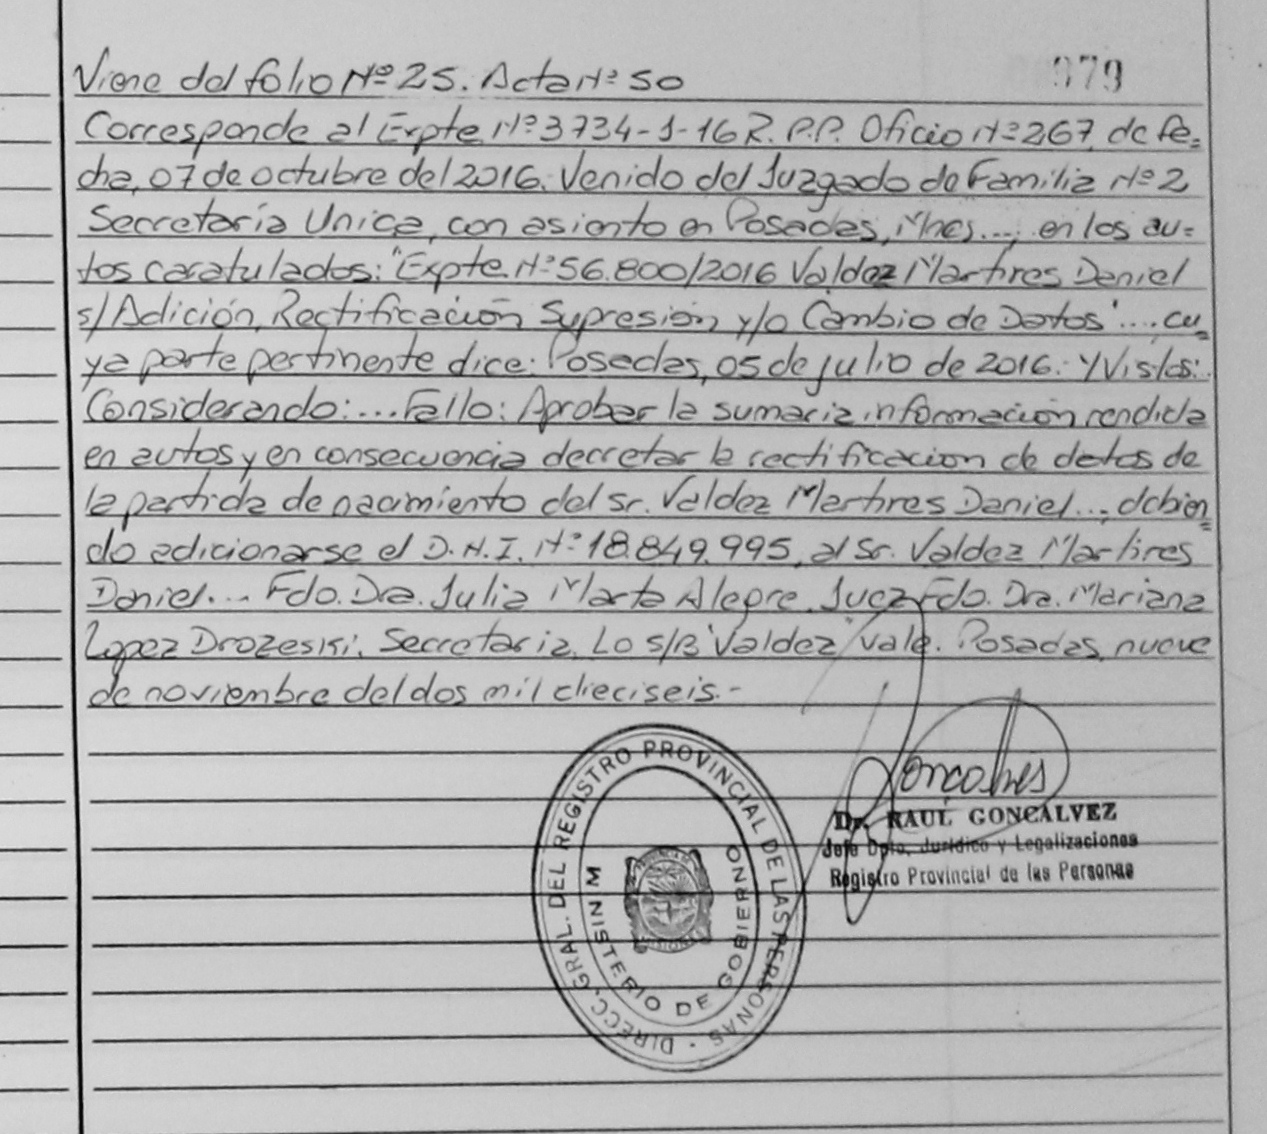 Viene del folio Nº 25. Acta Nº 50
979
Corresponde al Expte Nº 3734-J-16 R.P.P. Oficio Nº 267, de fe=
cha, 07 de octubre del 2016. Venido del Juzgado de Familia Nº 2
Secretaría Unica, con asiento en Posadas, Mnes...; en los au=
tos caratulados: "Expte Nº 56.800/2016 Valdez Martires Daniel
s/Adición, Rectificación Supresión y/o Cambio de Datos"....cu=
ya parte pertinente dice: Posadas, 05 de julio de 2016.- Y Vistos:
Considerando:...Fallo: Aprobar la sumaria información rendida
en autos y en consecuencia decretar la rectificacion de datos de
la partida de nacimiento del Sr. Valdez Martires Daniel...; debien=
do adicionarse el D.N.I. Nº 18.849.995, al Sr. Valdez Martires
Daniel... Fdo. Dra. Julia Marta Alegre. Juez Fdo. Dra. Mariana
Lopez Drozeski; Secretaria. Lo s/B "Valdez" Vale. Posadas, nueve
de noviembre del dos mil dieciseis.-
DIRECC. GRAL. DEL REGISTRO PROVINCIAL DE LAS PERSONAS -
MINISTERIO DE GOBIERNO
Goncalves
Dr. RAUL GONCALVEZ
Jefe Dpto. Jurídico y Legalizaciones
Registro Provincial de las Personas